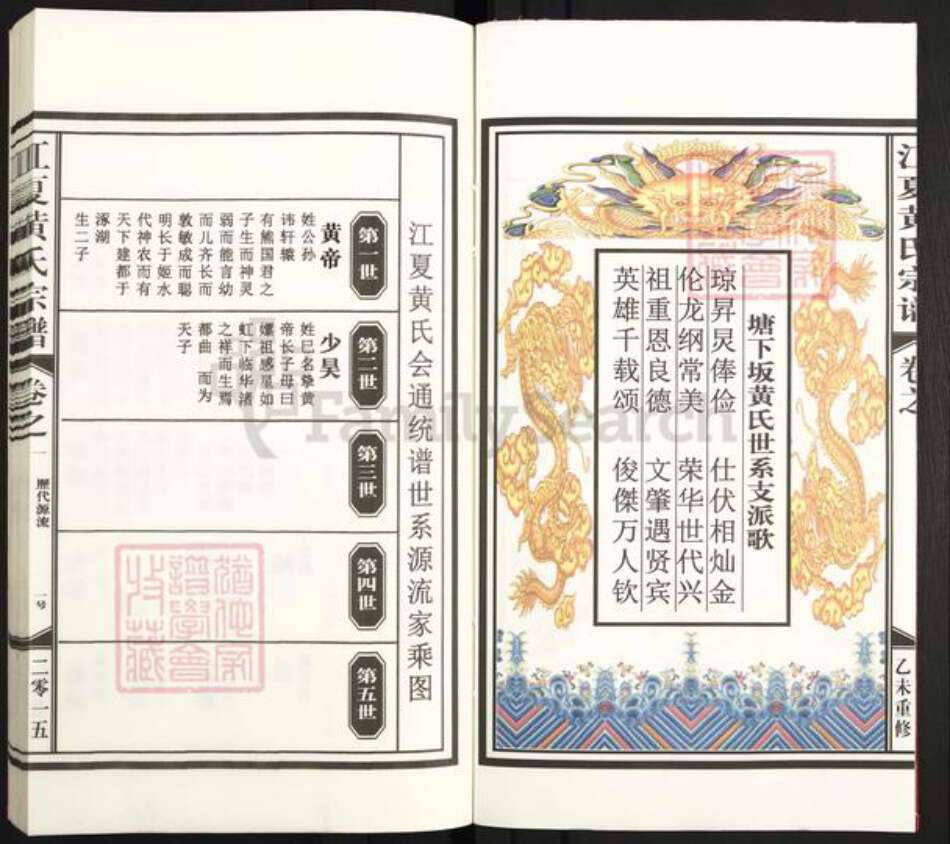 江夏黄氏宗谱
卷之
乙未重修
塘下坂黄氏世系支派歌
琼昇炅俸俭 仕伏相灿金
伦龙纲常美 荣华世代兴
祖重恩良德 文肇遇贤宾
英雄千载颂 俊傑万人钦
江夏黄氏会通统谱世系源流家乘图
第一世
黄帝
姓公孙
讳轩辕
有熊国君之
子生而神灵
弱而能言幼
而儿齐长而
敦敏成而聪
明长于姬水
代神农而有
天下建都于
涿湖
生二子
第二世
少昊
姓巳名摯黄
帝长子母曰
嫘祖感星如
虹下临华渚
之祥而生焉
都曲 而为
天子
第三世
第四世
第五世
江夏黄氏宗谱
卷之一
歷代源流
一号
二零一五
FamilySearch